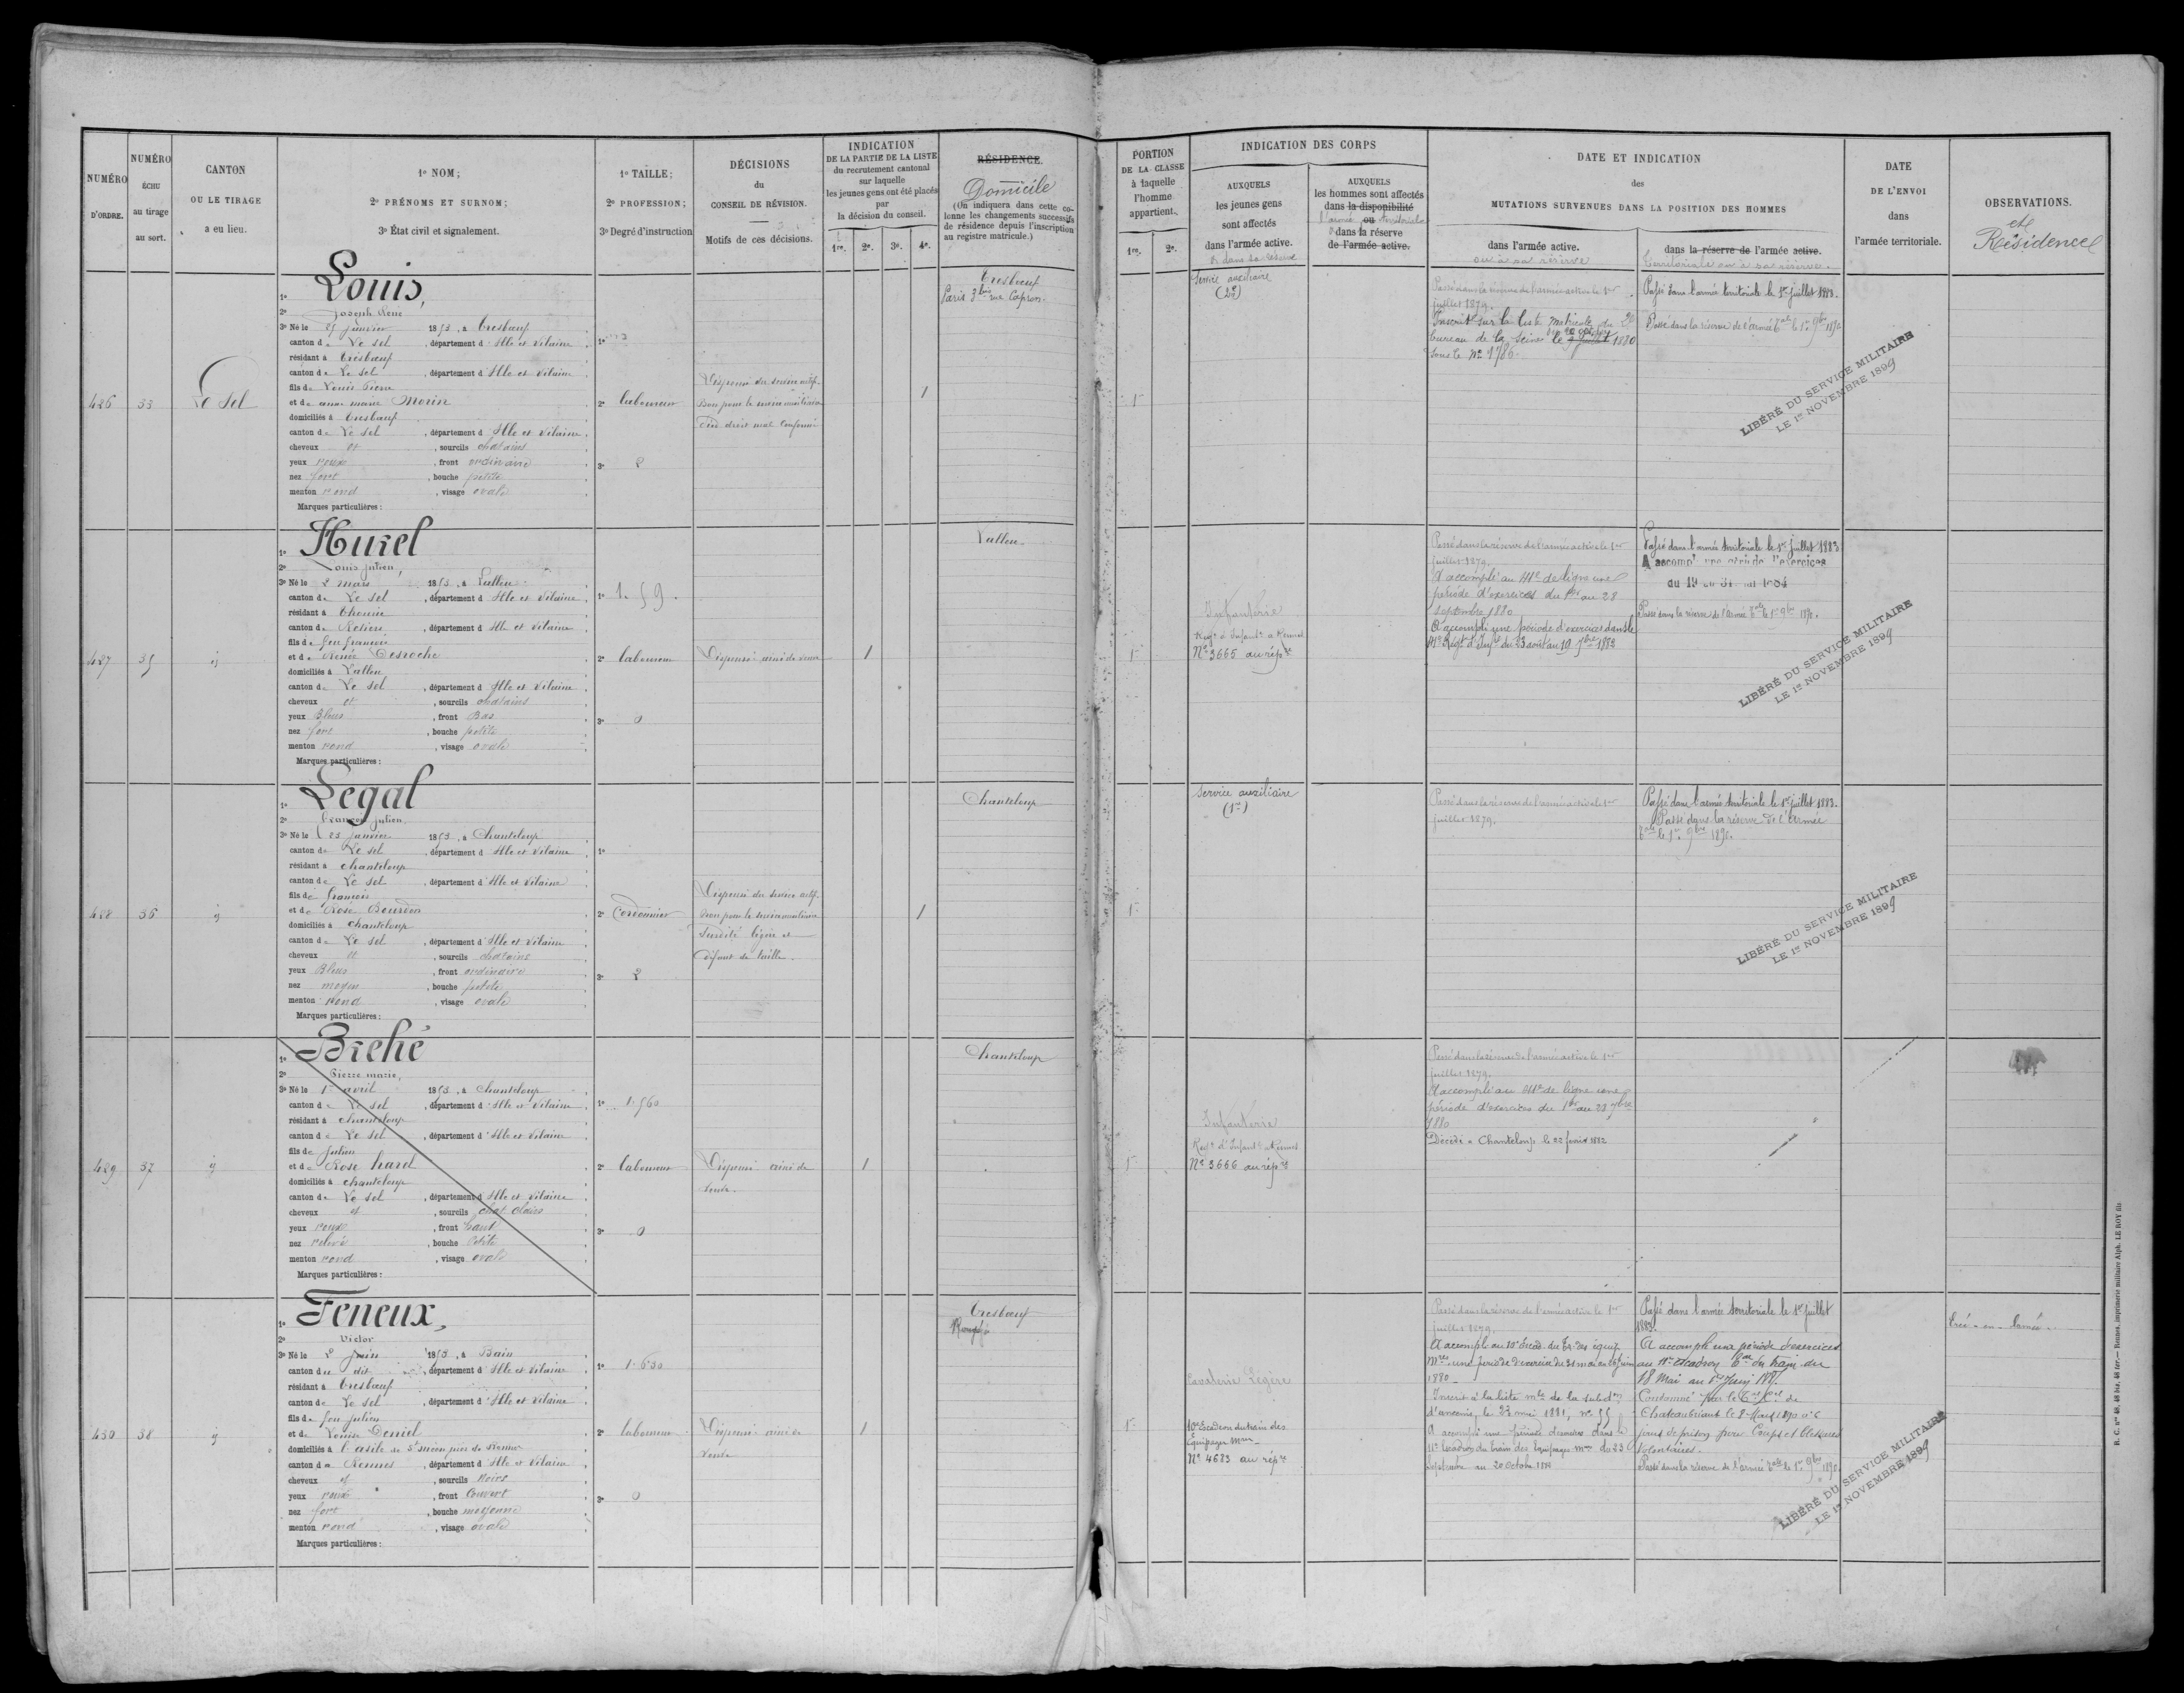 NUMÉRO
D'ORDRE.
NUMÉRO
ÉCHU
au tirage
au sort.
CANTON
OU LE TIRAGE
a eu lieu.
1º NOM;
2º PRÉNOMS ET SURNOM;
3º État civil et signalement.
1º TAILLE;
2º PROFESSION;
3º Degré d'instruction
DÉCISIONS
du
CONSEIL DE RÉVISION.
Motifs de ces décisions.
INDICATION
DE LA PARTIE DE LA LISTE
du recrutement cantonal
sur laquelle
les jeunes gens ont été placés
par
la décision du conseil.
1re. 2e. 3e. 4e.
RÉSIDENCE.
Domicile
(On indiquera dans cette co-
lonne les changements successifs
de résidence depuis l'inscription
au registre matricule.)
PORTION
DE LA CLASSE
à laquelle
l'homme
appartient.
1re. 2e.
INDICATION DES CORPS
AUXQUELS
les jeunes gens
sont affectés
dans l'armée active.
ou dans sa réserve
AUXQUELS
les hommes sont affectés
dans la disponibilité
ou
l'armée territoriale
dans la réserve
de l'armée active.
DATE ET INDICATION
des
MUTATIONS SURVENUES DANS LA POSITION DES HOMMES
dans l'armée active.
ou à sa réserve
dans la réserve de l'armée active.
territoriale ou à sa réserve.
DATE
DE L'ENVOI
dans
l'armée territoriale.
OBSERVATIONS.
et
Résidence
426 33 Le Sel
1º Louis,
2º Joseph René
3º Né le 25 janvier 1853, à Tresbœuf
canton de Le Sel, département d'Ille et Vilaine
résidant à Tresbœuf
canton de Le Sel, département d'Ille et Vilaine
fils de Louis Pierre
et de anne marie Morin
domiciliés à Tresbœuf
canton de Le Sel, département d'Ille et Vilaine
cheveux et, sourcils chatains
yeux roux, front ordinaire
nez fort, bouche petite
menton rond, visage ovale
Marques particulières:
1º
2º laboureur
3º 2
Dispensé du service actif.
Bon pour le service auxiliaire
pied droit mal conformé
1
Tresbœuf
Paris 3 bis rue Capron.
1
Service auxiliaire
(2e)
Passé dans la réserve de l'armée active le 1er
juillet 1879.
Inscrit sur la liste matricule du 2e
bureau de la Seine le 1880
sous le Nº 1786.
Passé dans l'armée territoriale le 1er juillet 1883.
Passé dans la réserve de l'armée tale le 1er 9bre 1890
LIBÉRÉ DU SERVICE MILITAIRE
LE 1er NOVEMBRE 1899
427 35 id
1º Hurel
2º Louis julien,
3º Né le 2 mars 1853, à Lalleu
canton de Le Sel, département d'Ille et Vilaine
résidant à Thourie
canton de Retiers, département d'Ille et Vilaine
fils de feu françois
et de Renée Desroche
domiciliés à Lalleu
canton de Le Sel, département d'Ille et Vilaine
cheveux et, sourcils chatains
yeux Bleus, front Bas
nez fort, bouche petite
menton rond, visage ovale
Marques particulières:
1º 1.59.
2º laboureur
3º 0
Dispensé ainé de veuve
1
Lalleu
1
Infanterie
Regt d'Infantie à Rennes
Nº 3665 au répre
Passé dans la réserve de l'armée active le 1er
juillet 1879.
A accompli au 41e de ligne une
période d'exercices du 1er au 28
septembre 1880
A accompli une période d'exercices dans le
41e Regt d'Infie du 23 août au 19 7bre 1882
Passé dans l'armée territoriale le 1er juillet 1883
A accompli une période d'exercices
du 19 au 31 mai 1884
Passé dans la réserve de l'armée tale le 1er 9bre 1890.
LIBÉRÉ DU SERVICE MILITAIRE
LE 1er NOVEMBRE 1899
428 36 id
1º Legal
2º François julien
3º Né le 23 janvier 1853, à Chanteloup
canton de Le Sel, département d'Ille et Vilaine
résidant à chanteloup
canton de Le Sel, département d'Ille et Vilaine
fils de françois
et de Rose Bourdon
domiciliés à chanteloup
canton de Le Sel, département d'Ille et Vilaine
cheveux et, sourcils chatains
yeux Bleus, front ordinaire
nez moyen, bouche petite
menton Rond, visage ovale
Marques particulières:
1º
2º Cordonnier
3º 2
Dispensé du service actif.
Bon pour le service auxiliaire
Surdité légère et
défaut de taille.
1
Chanteloup
1
Service auxiliaire
(1re)
Passé dans la réserve de l'armée active le 1er
juillet 1879.
Passé dans l'armée territoriale le 1er juillet 1883.
Passé dans la réserve de l'Armée
tale le 1er 9bre 1890
LIBÉRÉ DU SERVICE MILITAIRE
LE 1er NOVEMBRE 1899
429 37 id
1º Brehé
2º Pierre marie,
3º Né le 1er avril 1853, à Chanteloup
canton de Le Sel, département d'Ille et Vilaine
résidant à chanteloup
canton de Le Sel, département d'Ille et Vilaine
fils de julien
et de Rose harel
domiciliés à chanteloup
canton de Le Sel, département d'Ille et Vilaine
cheveux et, sourcils chat. clairs
yeux roux, front haut
nez relevé, bouche petite
menton rond, visage ovale
Marques particulières:
1º 1.560
2º laboureur
3º 0
Dispensé ainé de
veuve.
1
Chanteloup
1
Infanterie
Regt d'Infantie à Rennes
Nº 3666 au répre
Passé dans la réserve de l'armée active le 1er
juillet 1879.
A accompli au 41e de ligne une
période d'exercices du 1er au 28 7bre
1880
Décédé à Chanteloup le 22 février 1882
430 38 id
1º Feneux,
2º Victor
3º Né le 2 juin 1853, à Bain
canton du dit, département d'Ille et Vilaine
résidant à Tresbœuf
canton de Le Sel, département d'Ille et Vilaine
fils de feu julien
et de Louise Deniel
domiciliés à l'asile de St méen près de Rennes
canton de Rennes, département d'Ille et Vilaine
cheveux et, sourcils Noirs
yeux roux, front Couvert
nez fort, bouche moyenne
menton rond, visage ovale
Marques particulières:
1º 1.630
2º laboureur
3º 0
Dispensé ainé de
veuve
1
Tresbœuf
Rougé
1
Cavalerie Légère
10e Escadron du train des
Équipages Mres
Nº 4683 au répre
Passé dans la réserve de l'armée active le 1er
juillet 1879.
A accompli au 10e Escad. du Tr. des équip.
Mres une période d'exercice du 31 mai au 26 juin
1880
Inscrit à la liste mle de la subdon
d'ancenis, le 23 mai 1881, nº 55
A accompli une période d'exercices dans le
11e Escadron du train des Équipages mres du 23
Septembre au 20 Octobre
Passé dans l'armée territoriale le 1er juillet
1883.
A accompli une période d'exercices
au 11e escadron tal du train du
18 Mai au 1er Juin 188
Condamné par le Tal Cel de
Chateaubriant le 8 Mars 1890 à 6
jours de prison pour Coups et blessures
Volontaires.
Passé dans la réserve de l'armée tale le 1er 9bre 1890.
LIBÉRÉ DU SERVICE MILITAIRE
LE 1er NOVEMBRE 1899
R. C. nos 48, 48 bis, 48 ter. — Rennes, imprimerie militaire Alph. LE ROY fils